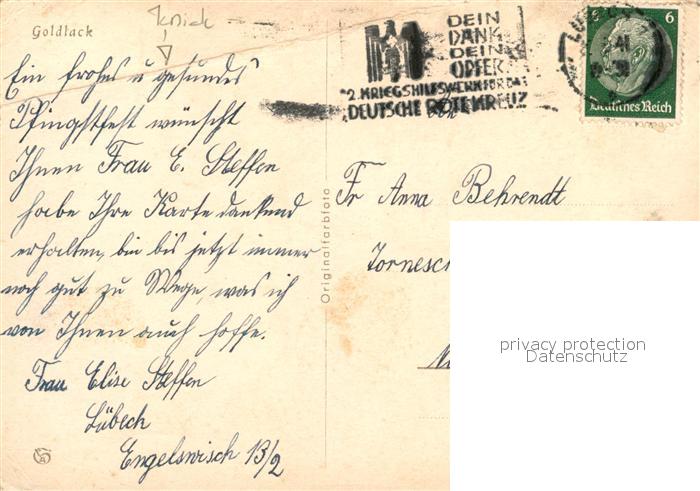 Goldlack
Knick
Ein frohes u. gesundes
Pfingstfest wünscht
Ihnen Frau E. Steffen
habe Ihre Karte dankend
erhalten, bin bis jetzt immer
noch gut zu Wege, was ich
von Ihnen auch hoffe.
Frau Elise Steffen
Lübeck
Engelswisch 13/2
Originalfarbfoto
DEIN
DANK
DEIN
OPFER
2. KRIEGSHILFSWERK FÜR DAS
DEUTSCHE ROTE KREUZ
6
Deutsches Reich
Fr Anna Behrendt
Tornesch
privacy protection
Datenschutz